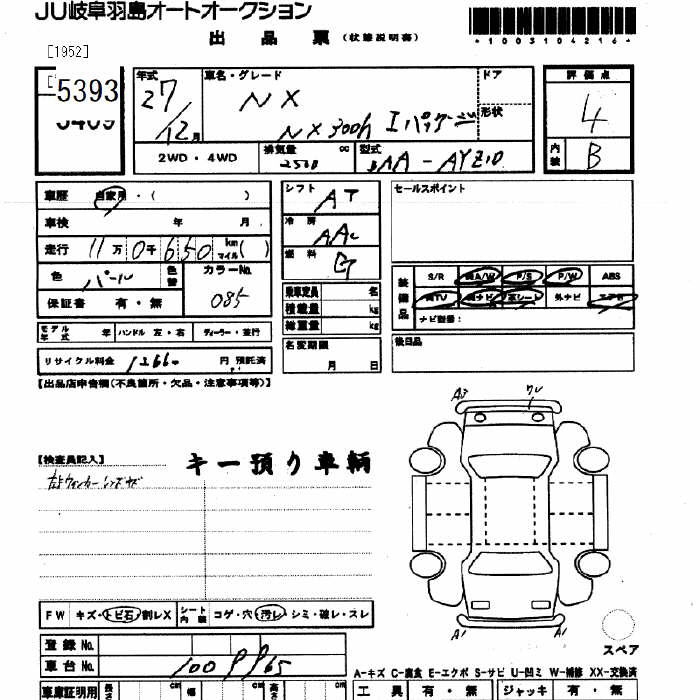 JU岐阜羽島オートオークション
出品票 (状態説明書)
*1003104216*
[1952]
5393
年式 27/12月
車名・グレード NX
NX300h Iパッケージ
ドア
形状
評価点 4
内装 B
2WD・4WD
排気量 2500 cc
型式 DAA-AYZ10
車歴 自家用・( )
車検 年 月
走行 11万0千650 km マイル( )
色 パール
色替
カラーNo. 085
保証書 有・無
モデル年式 年 ハンドル 左・右 ディーラー・並行
リサイクル料金 円 預託済
シフト AT
冷房 AAC
燃料 G
乗車定員 名
積載量 kg
総重量 kg
名変期限 月 日
セールスポイント
装備品 S/R 純A/W P/S P/W ABS
純TV 純ナビ 革シート 外ナビ エアB
ナビ型番:
後日品
【出品店申告欄(不良箇所・欠品・注意事項等)】
【検査員記入】
キー預り車輌
A3
A1
A1
スペア
FW キズ・トビ石・割レX シート内装 コゲ・穴・汚レ・シミ・破レ・スレ
登録No.
車台No.
A-キズ C-腐食 E-エクボ S-サビ U-凹ミ W-補修 XX-交換済
車庫証明用 長さ cm 幅 cm 高さ cm
工具 有・無 ジャッキ 有・無